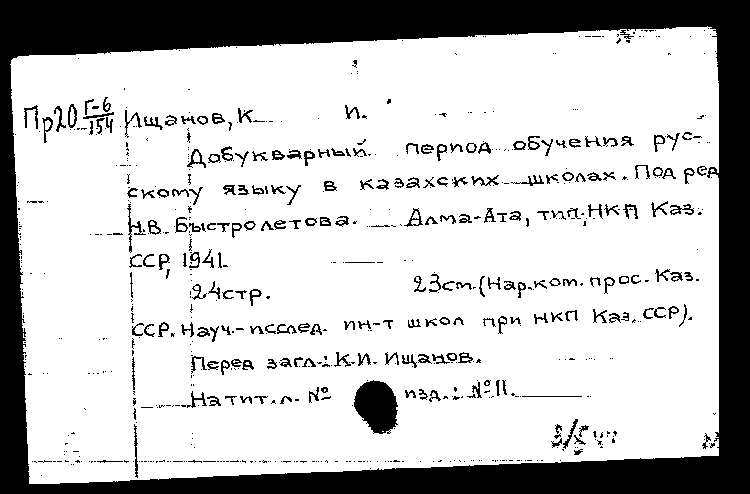 Пр20 Г-6/154 Ищанов, К. И.
Добукварный период обучения рус-
скому языку в казахских школах. Под ред
Н.В. Быстролетова. Алма-Ата, тип. НКП Каз.
ССР, 1941.
24стр. 23см. (Нар.ком. прос. Каз.
ССР. Науч.-исслед. ин-т школ при НКП Каз. ССР).
Перед загл.: К.И. Ищанов.
На тит. л. № изд.: № 11.
3/5